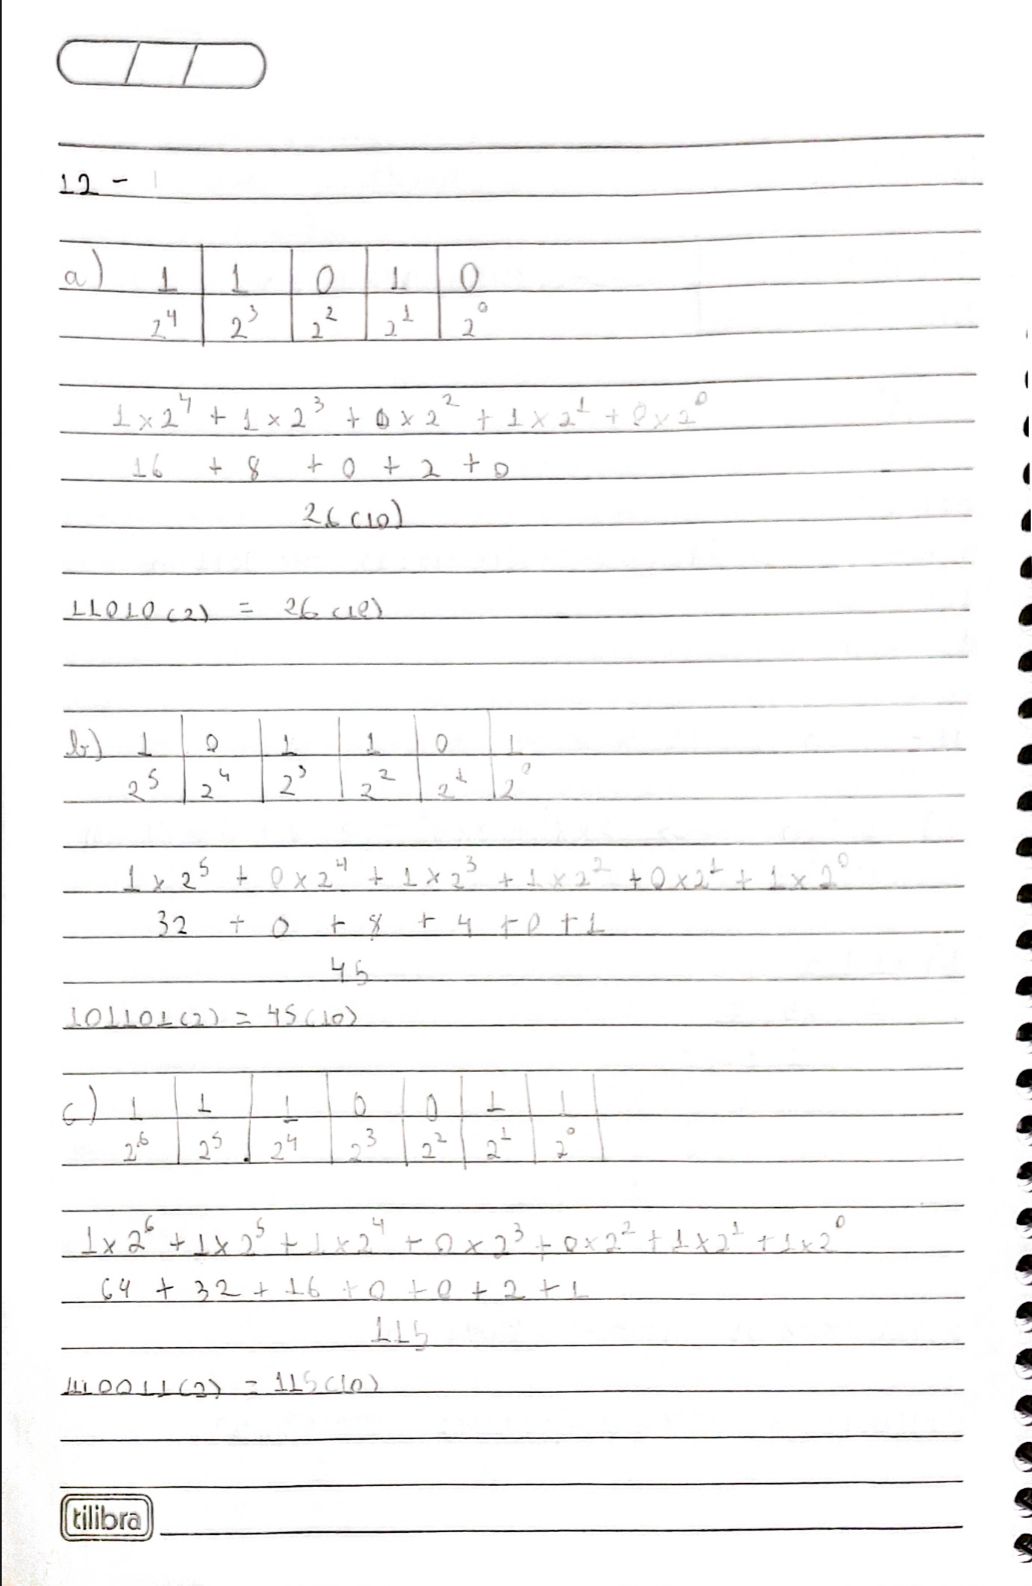 12 -
a) 1 1 0 1 0
2⁴ 2³ 2² 2¹ 2⁰
1 x 2⁴ + 1 x 2³ + 0 x 2² + 1 x 2¹ + 0 x 2⁰
16 + 8 + 0 + 2 + 0
26 (10)
11010 (2) = 26 (10)
b) 1 0 1 1 0 1
2⁵ 2⁴ 2³ 2² 2¹ 2⁰
1 x 2⁵ + 0 x 2⁴ + 1 x 2³ + 1 x 2² + 0 x 2¹ + 1 x 2⁰
32 + 0 + 8 + 4 + 0 + 1
45
101101 (2) = 45 (10)
c) 1 1 1 0 0 1 1
2⁶ 2⁵ 2⁴ 2³ 2² 2¹ 2⁰
1 x 2⁶ + 1 x 2⁵ + 1 x 2⁴ + 0 x 2³ + 0 x 2² + 1 x 2¹ + 1 x 2⁰
64 + 32 + 16 + 0 + 0 + 2 + 1
115
1110011 (2) = 115 (10)
tilibra